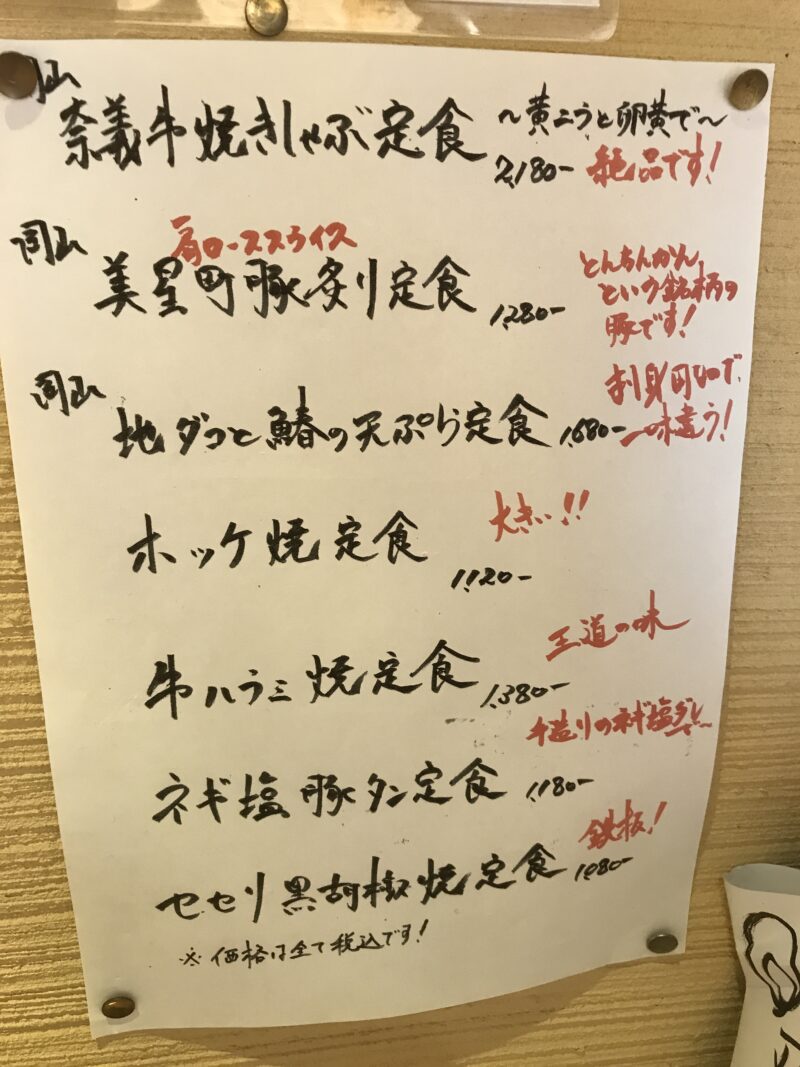 岡山
奈義牛焼きしゃぶ定食
〜黄ニラと卵黄で〜
2,180-
絶品です!
岡山
肩ローススライス
美星町豚炙り定食
1,280-
とんちんかん、
という銘柄の
豚です!
岡山
地ダコと鰆の天ぷら定食
1,680-
刺身可なので
一味違う!
ホッケ焼定食
1,120-
大きい!!
牛ハラミ焼定食
1,380-
王道の味
ネギ塩豚タン定食
1,180-
手造りのネギ塩ダレ〜
セセリ黒胡椒焼定食
1,080-
鉄板!
※価格は全て税込です!